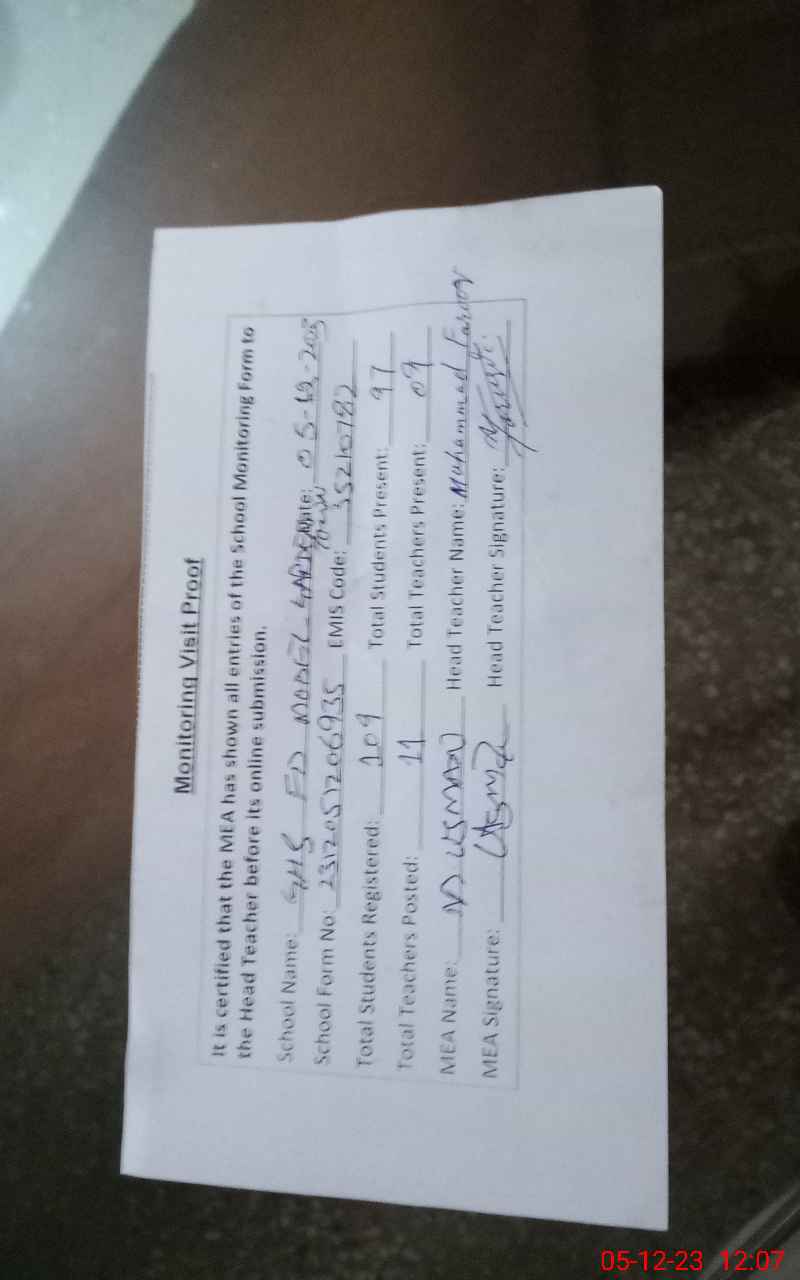 Monitoring Visit Proof
It is certified that the MEA has shown all entries of the School Monitoring Form to
the Head Teacher before its online submission.
School Name: GHS FD MODEL GARDEN TOWN Date: 05-12-2023
School Form No: 2312051206935 EMIS Code: 35210782
Total Students Registered: 109 Total Students Present: 97
Total Teachers Posted: 11 Total Teachers Present: 09
MEA Name: M USMAN Head Teacher Name: Muhammad Farooq
MEA Signature: Usman Head Teacher Signature:
05-12-23 12:07